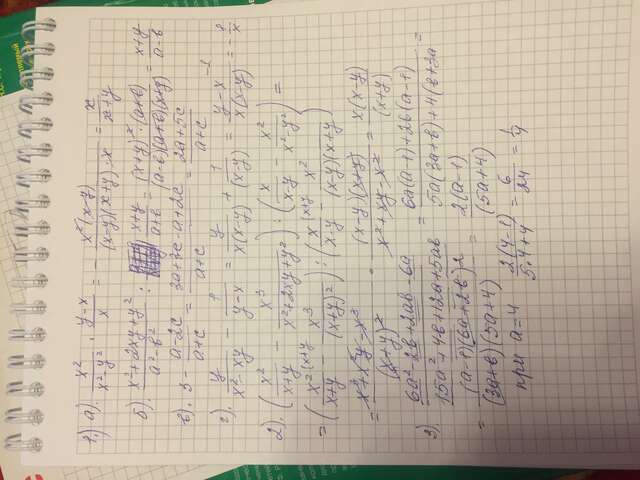 1.) а). x²/(x²-y²) · (y-x)/x = - x²(x-y)/((x-y)(x+y)·x) = x/(x+y)
б). (x²+2xy+y²)/(a²-b²) : (x+y)/(a+b) = (x+y)²·(a+b)/((a-b)(a+b)(x+y)) = (x+y)/(a-b)
в). 3 - (a-2c)/(a+c) = (3a+3c-a+2c)/(a+c) = (2a+5c)/(a+c)
г). y/(x²-xy) - 1/(y-x) = y/(x(x-y)) + 1/(x-y) = (y-x)/(x(x-y)) = - 1/x
2). (x²/(x+y) - x³/(x²+2xy+y²)) : (x/(x-y) - x²/(x²-y²)) =
= (x²/(x+y) - x³/(x+y)²) : (x/(x-y) - x²/((x-y)(x+y))) =
= (x³+x²y-x³)/(x+y)² · (x-y)(x+y)/(x²+xy-x²) = x(x-y)/(x+y)
3) (6a²-2b+2ab-6a)/(15a²+4b+12a+5ab) = (6a(a-1)+2b(a-1))/(5a(3a+b)+4(b+3a)) =
= (a-1)(6a+2b)/((3a+b)(5a+4)) = 2(a-1)/(5a+4)
при a=4 2(4-1)/(5·4+4) = 6/24 = 1/4